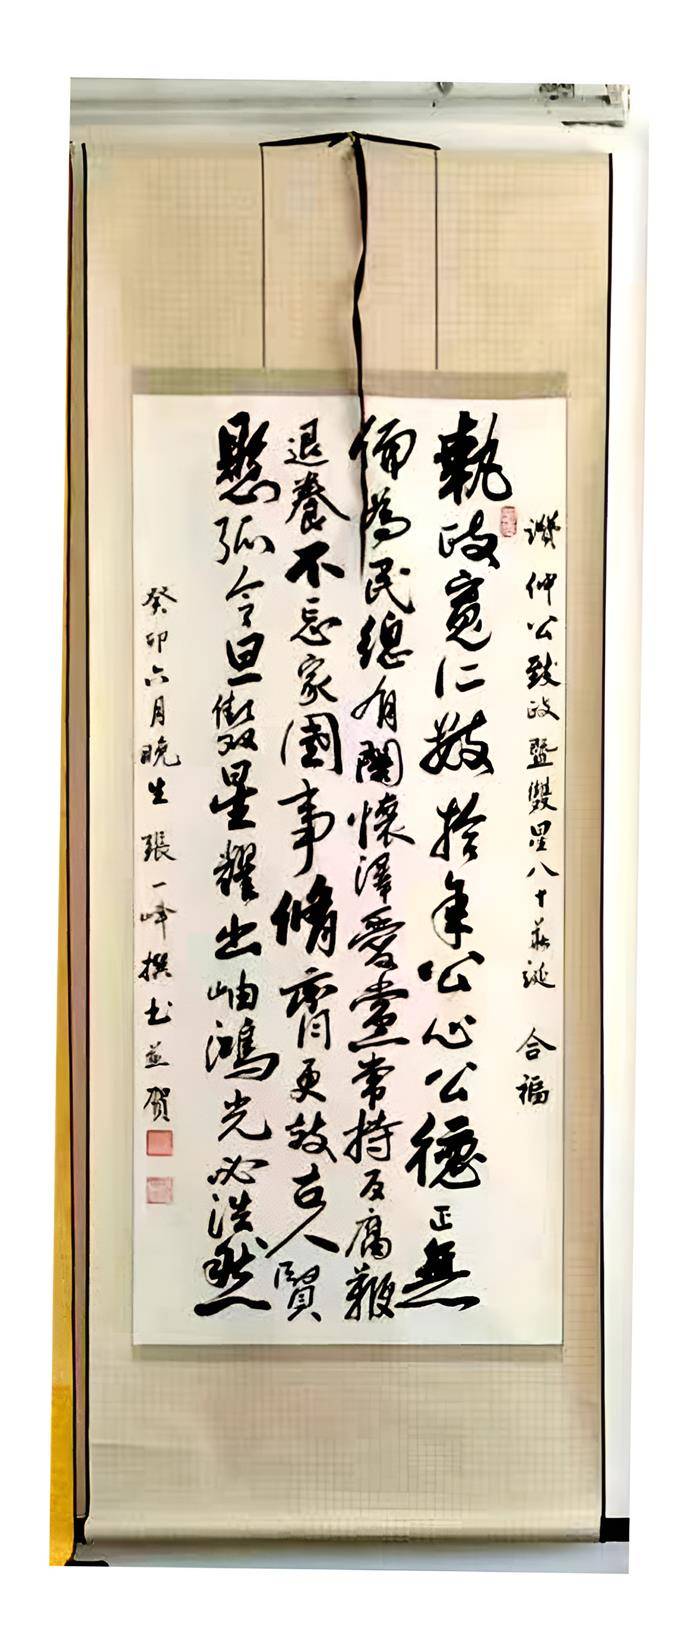 讚仲公致政暨雙星八十華誕 合福
執政寬仁數拾年公心公德正無
偏為民總有關懷澤愛黨常持反腐鞭
退養不忘家國事脩齊更效古人賢
懸弧令旦雙星耀出岫鴻光必浩然
癸卯六月晚生張一峰撰书並賀